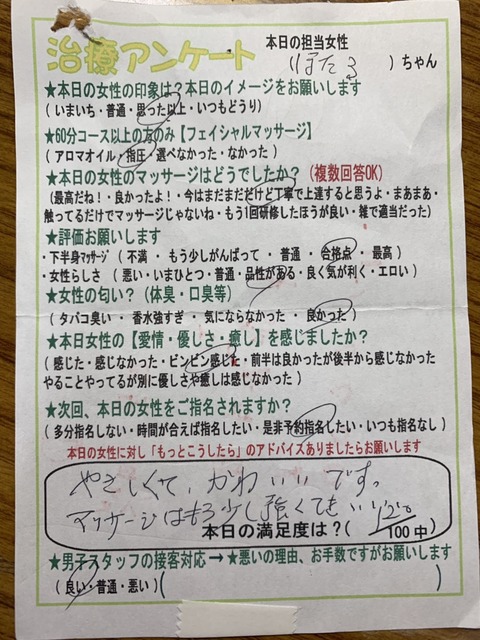 治療アンケート
本日の担当女性
(ほたる)ちゃん
★本日の女性の印象は?本日のイメージをお願いします
(いまいち・普通・思った以上・いつもどうり)
★60分コース以上の方のみ【フェイシャルマッサージ】
(アロマオイル・指圧・選べなかった・なかった)
★本日の女性のマッサージはどうでしたか?(複数回答OK)
(最高だね!・良かったよ!・今はまだまだだけど丁寧で上達すると思うよ・まあまあ・
触ってるだけでマッサージじゃないね・もう1回研修したほうが良い・雑で適当だった)
★評価お願いします
・下半身マッサージ(不満・もう少しがんばって・普通・合格点・最高)
・女性らしさ(悪い・いまひとつ・普通・品性がある・良く気が利く・エロい)
★女性の匂い?(体臭・口臭等)
(タバコ臭い・香水強すぎ・気にならなかった・良かった)
★本日女性の【愛情・優しさ・癒し】を感じましたか?
(感じた・感じなかった・ビンビン感じた・前半は良かったが後半から感じなかった
やることやってるが別に優しさや癒しは感じなかった)
★次回、本日の女性をご指名されますか?
(多分指名しない・時間が合えば指名したい・是非予約指名したい・いつも指名なし)
本日の女性に対し「もっとこうしたら」のアドバイスありましたらお願いします
やさしくて、かわいいです。
マッサージはもう少し強くてもいい
本日の満足度は?(120/100中)
★男子スタッフの接客対応→★悪いの理由、お手数ですがお願いします
(良い・普通・悪い)( )